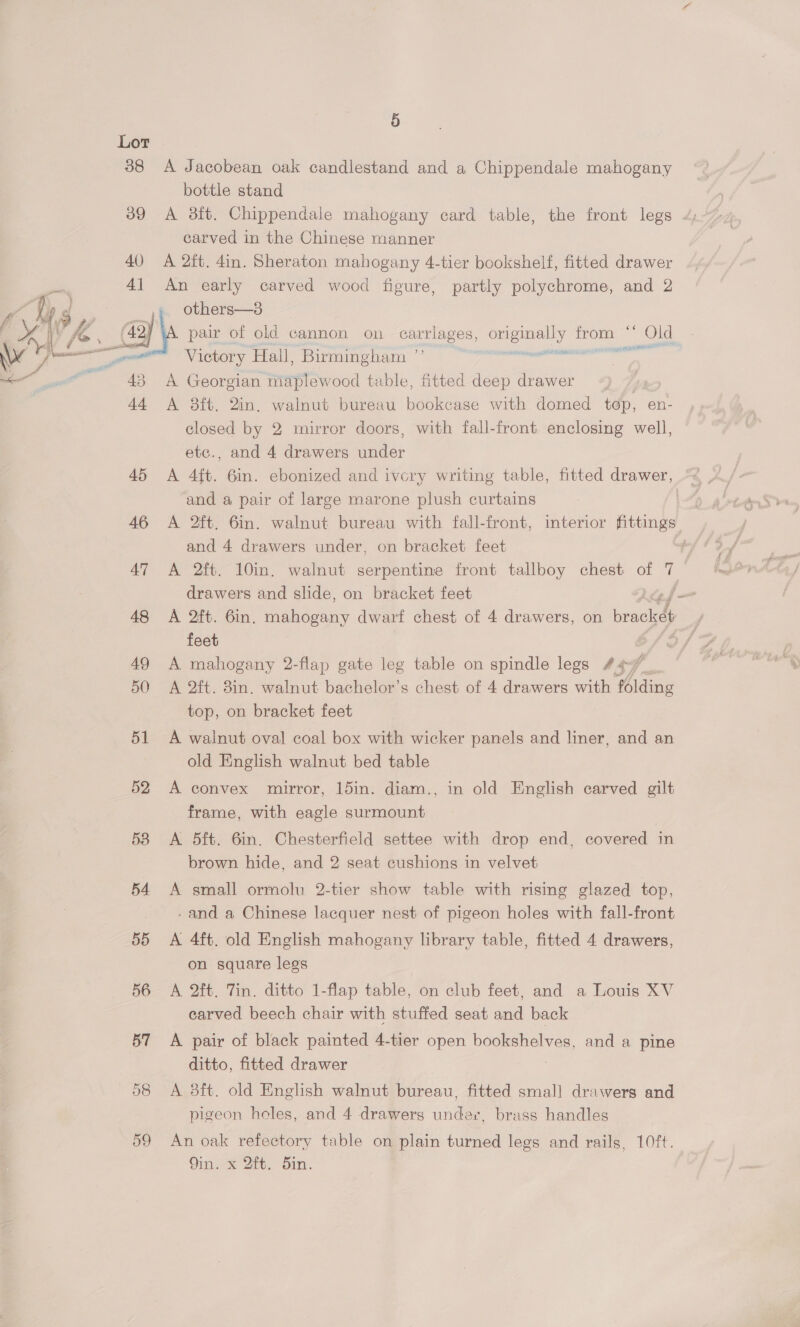 5
Lot
38 A Jacobean oak candlestand and a Chippendale mahogany
bottle stand
39 A 3ft. Chippendale mahogany card table, the front legs
carved in the Chinese manner
40 A 2ft. 4in. Sheraton mahogany 4-tier bookshelf, fitted drawer
41 An early carved wood figure, partly polychrome, and 2
others—3
42 A pair of old cannon on carriages, originally from “ Old
Victory Hall, Birmingham ”
43 A Georgian maplewood table, fitted deep drawer
44 A 3ft. 2in. walnut bureau bookcase with domed top, en-
closed by 2 mirror doors, with fall-front enclosing well,
etc., and 4 drawers under
45 A 4ft. 6in. ebonized and ivory writing table, fitted drawer,
and a pair of large marone plush curtains
46 A 2ft. 6in. walnut bureau with fall-front, interior fittings
and 4 drawers under, on bracket feet
47 A 2ft. 10in. walnut serpentine front tallboy chest of 7
drawers and slide, on bracket feet
48 A 2ft. 6in. mahogany dwarf chest of 4 drawers, on bracket
feet
49 A mahogany 2-flap gate leg table on spindle legs
50 A 2ft. 3in. walnut bachelor's chest of 4 drawers with folding
top, on bracket feet
51 A walnut oval coal box with wicker panels and liner, and an
old English walnut bed table
52 A convex mirror, 15in. diam., in old English carved gilt
frame, with eagle surmount
53 A 5ft. 6in. Chesterfield settee with drop end, covered in
brown hide, and 2 seat cushions in velvet
54 A small ormolu 2-tier show table with rising glazed top,
and a Chinese lacquer nest of pigeon holes with fall-front
55 A 4ft. old English mahogany library table, fitted 4 drawers,
on square legs
56 A 2ft. 7in. ditto 1-flap table, on club feet, and a Louis XV
carved beech chair with stuffed seat and back
57 A pair of black painted 4-tier open bookshelves, and a pine
ditto, fitted drawer
58 A 3ft. old English walnut bureau, fitted small drawers and
pigeon holes, and 4 drawers under, brass handles
59 An oak refectory table on plain turned legs and rails, 10ft.
9in. x 2ft. 5in.